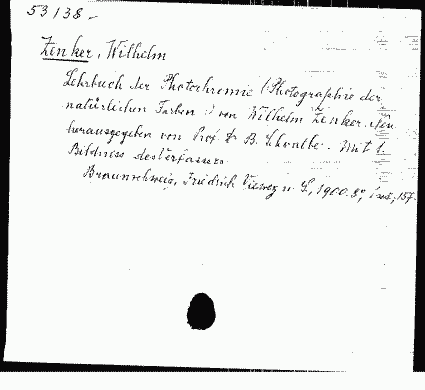 53138-
Zenker, Wilhelm
Lehrbuch der Photochromie (: Photographie der
natürlichen Farben :) von Wilhelm Zenker. Neu
herausgegeben von Prof. Dr B. Schwalbe. Mit 1.
Bildniss des Verfassers
Braunschweig, Friedrich Vieweg u. S., 1900. 8°, 157.